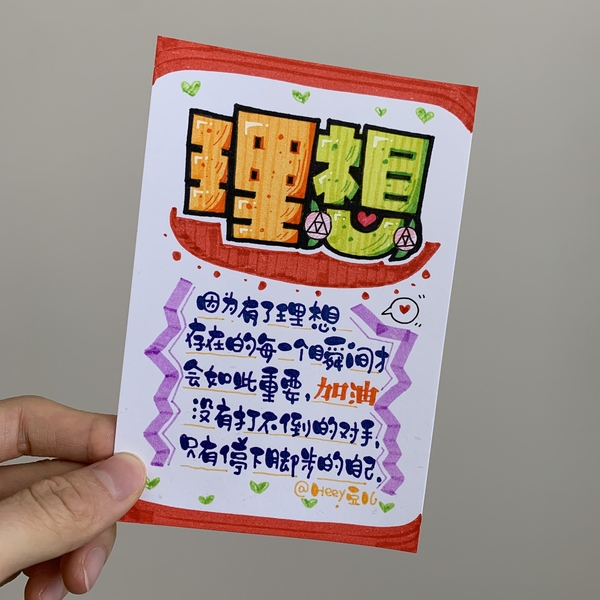 理想
因为有了理想
存在的每一个瞬间才
会如此重要，加油
没有打不倒的对手，
只有停下脚步的自己.
@Heey豆儿